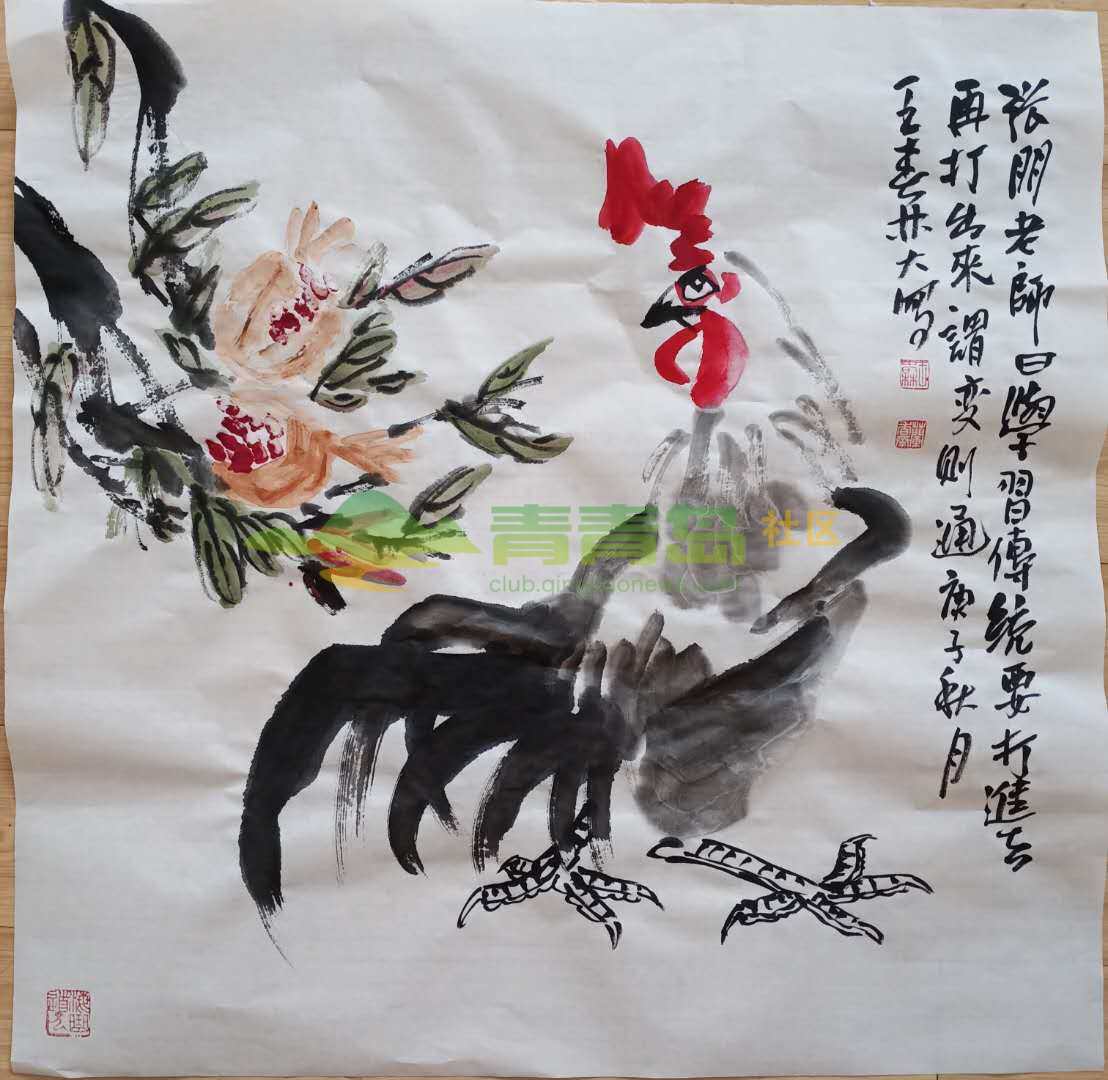 张朋老師曰學習傳統要打進去
再打出來謂变则通庚子秋月
王春林大寫
青青岛社区
club.qingdaonews.com